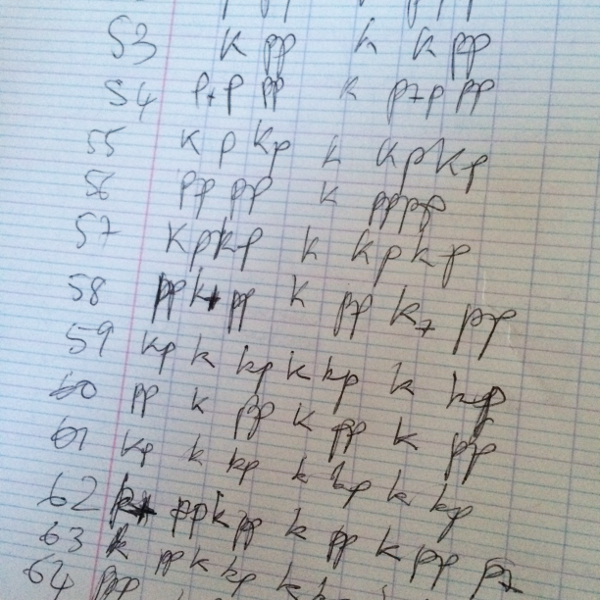 53 k pp k k pp
54 p+p pp k p+p pp
55 k p kp k kp kp
56 pp pp k pppp
57 kpkp k kp kp
58 ppk+pp k pp k+ pp
59 kp k kp k kp k kp
60 pp k pp k pp k pp
61 kp k kp k kp k kp
62 k+ ppk pp k pp k pp p+
63 k pp k kp k
64 pp